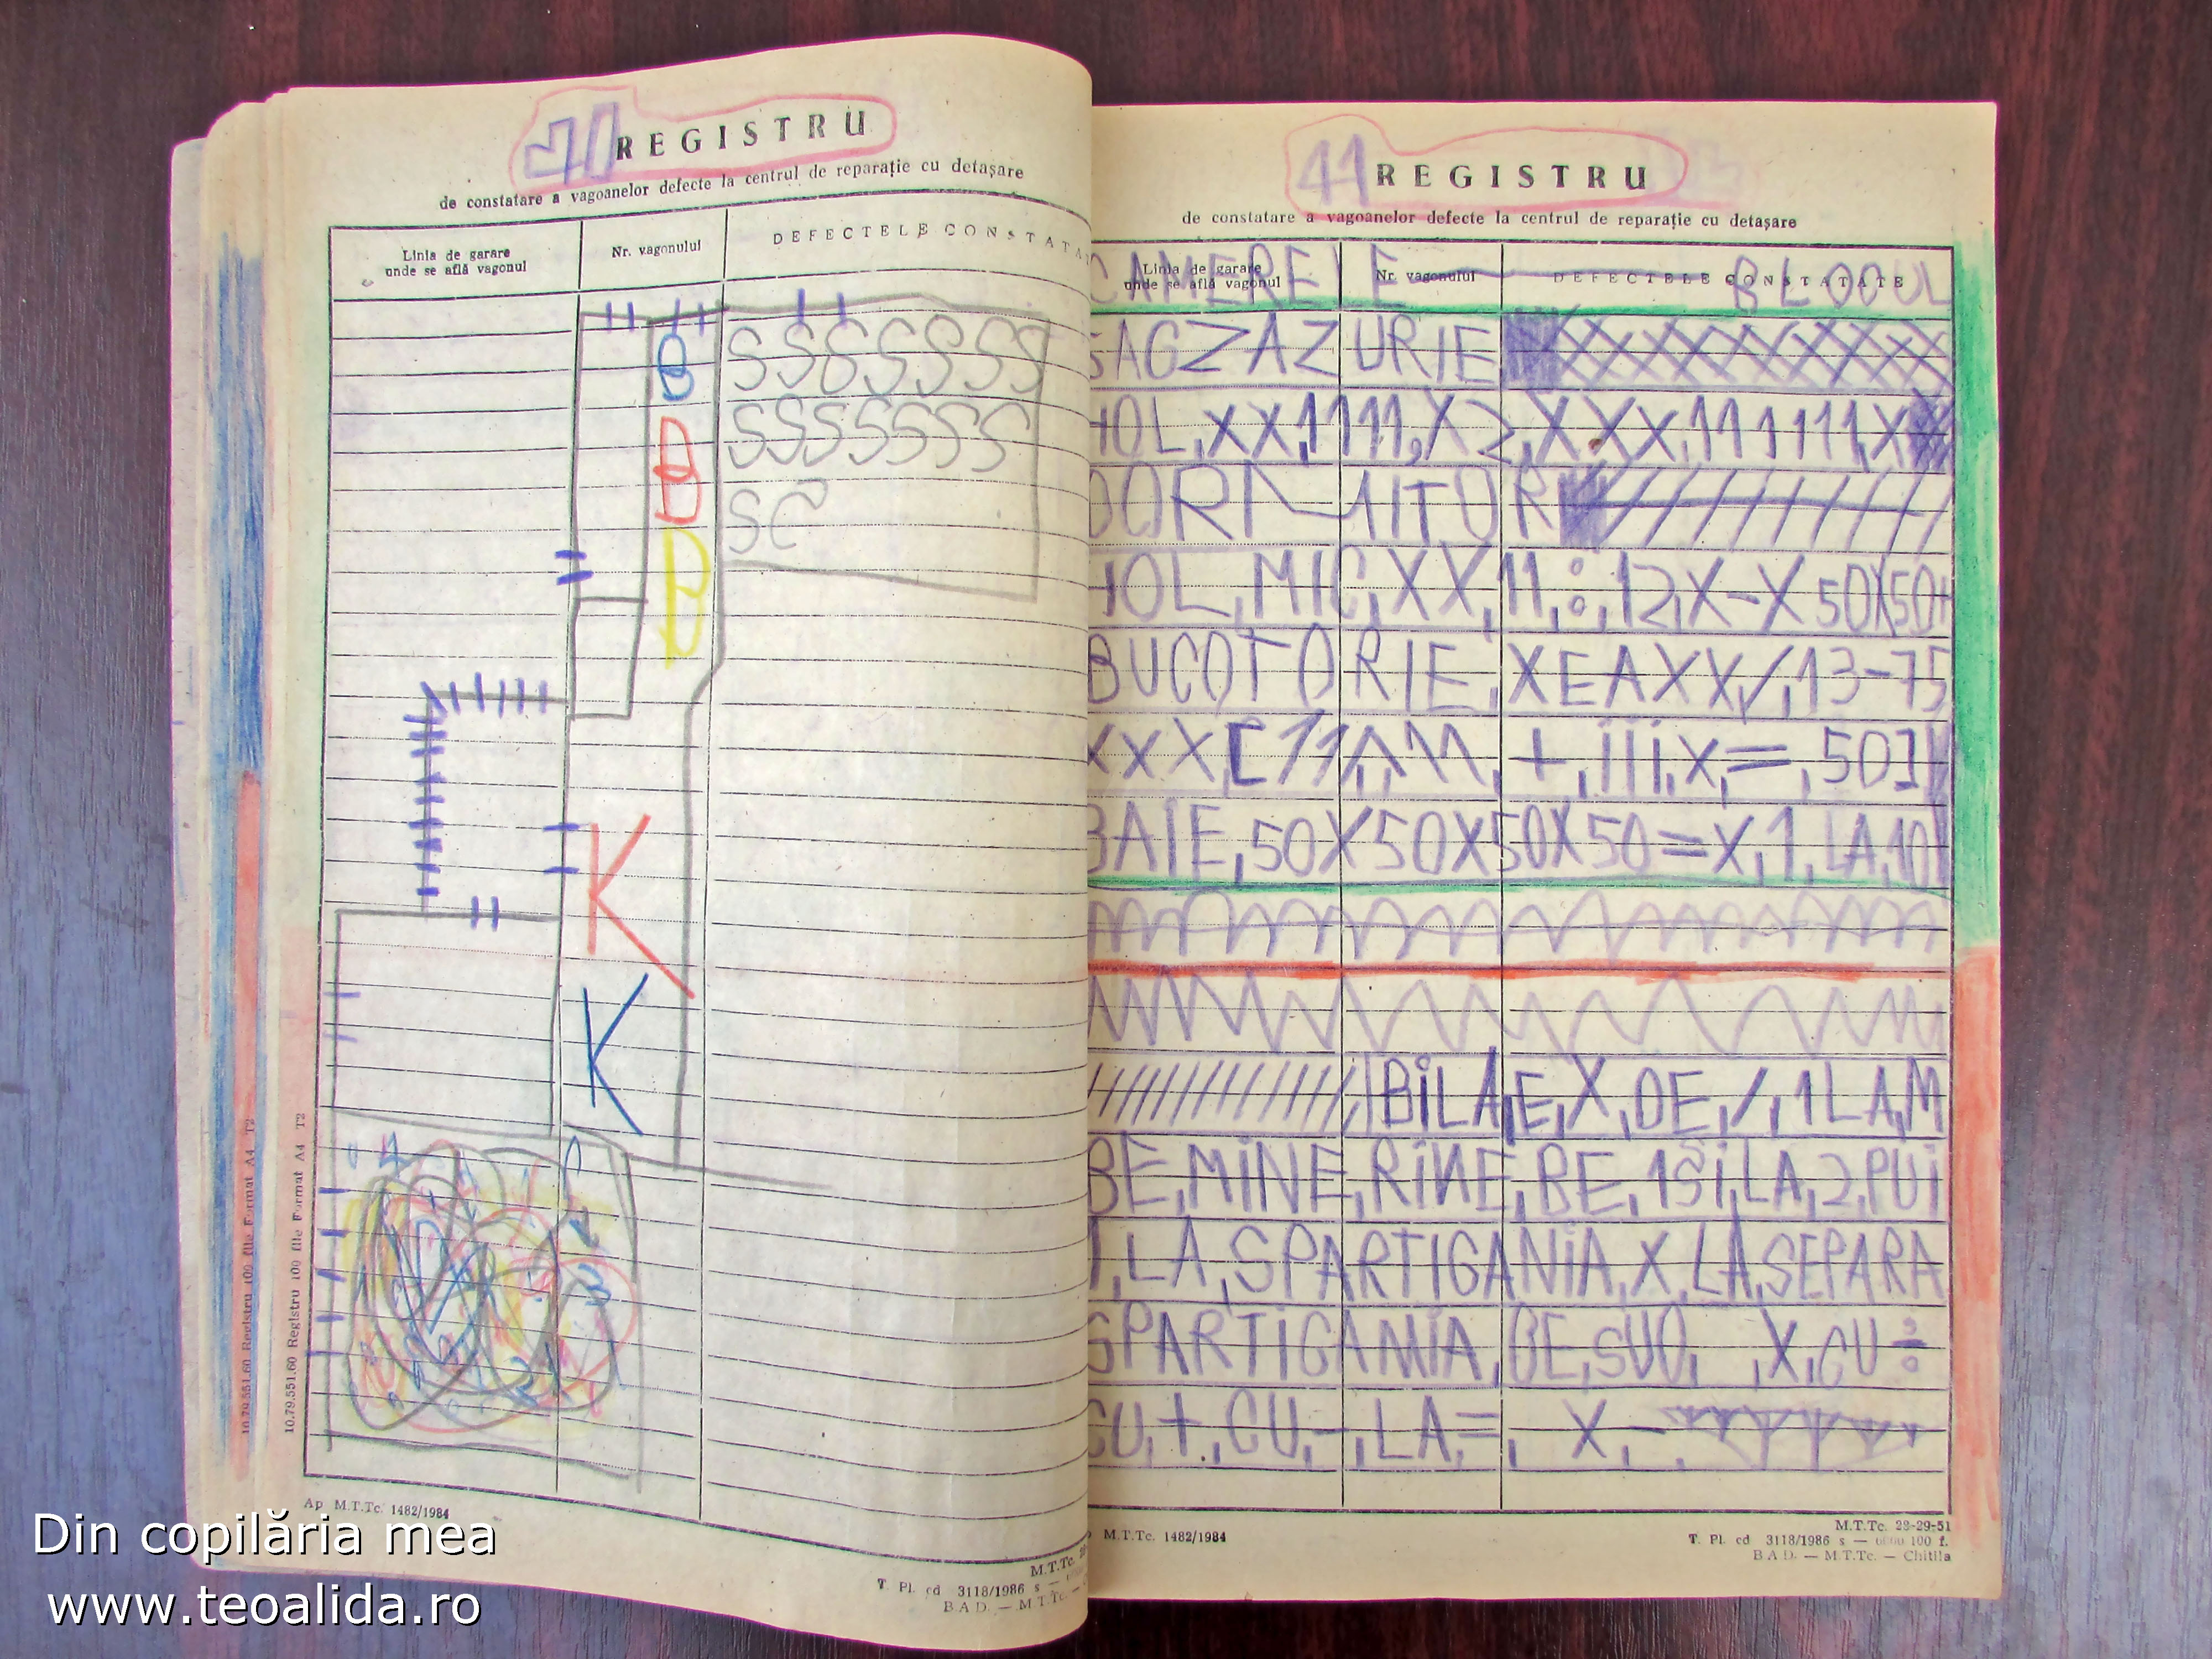 REGISTRU
de constatare a vagoanelor defecte la centrul de reparație cu detașare
Linia de garare
unde se află vagonul
Nr. vagonului
DEFECTELE CONSTATA
B
SSSSSSS
B
SSSSSSS
B
K
K
10.79.551.60 Registru 100 file Format A4 T2
10.79.551.60 Registru 100 file Format A4 T2
Ap M.T.Tc. 1482/1984
M.T.Tc.
T. Pl. cd 3118/1986 s —
B.A.D. — M.T.Tc.
41 REGISTRU
de constatare a vagoanelor defecte la centrul de reparație cu detașare
CAMERELE BLOCUL
Linia de garare
unde se află vagonul
Nr. vagonului
DEFECTELE CONSTATATE
HOL,XX,1111,X
HOL,MIC,XX,11,:,12,X-X 50X50+
BUCOTORIE,XEAXX/,13-75
BAIE,50X50X50X50=X,1,LA,10
BILA,E,X,DE,/,1LA,M
BE,MINE,RINE,BE,1SI,LA,2,PUI
LA,SPARTIGANIA,X,LA,SEPARA
SPARTIGANIA,BE,SUO, ,X,CU÷
CU,+,CU,-,LA,=, X,-
M.T.Tc. 1482/1984
M.T.Tc. 23-29-51
T. Pl. cd 3118/1986 s — 100 f.
B.A.D. — M.T.Tc. — Chitila
Din copilăria mea
www.teoalida.ro